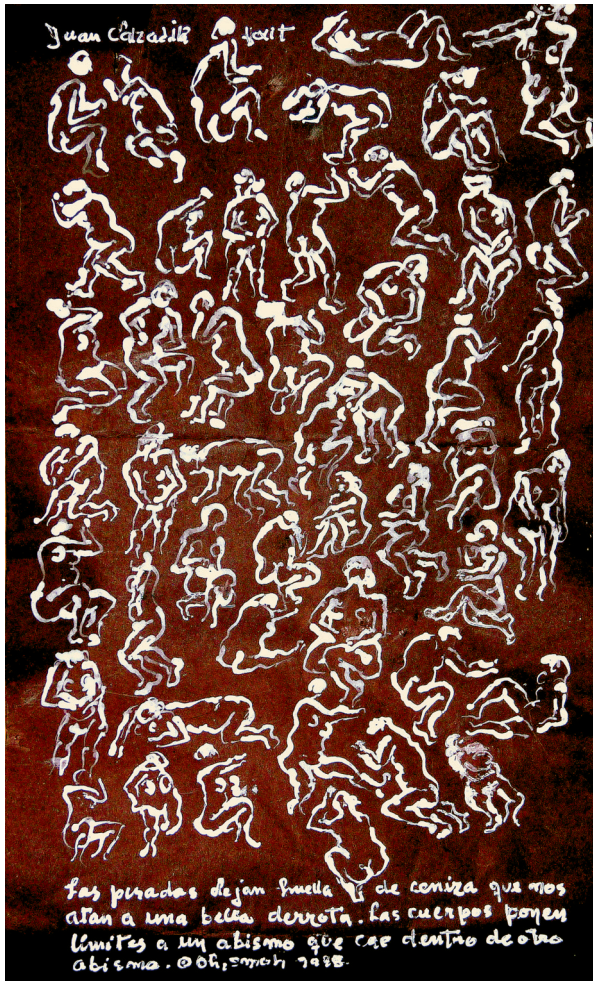 Juan Calzadilla
Las pisadas dejan huella de ceniza que nos
atan a una bella derrota. Las cuerpos ponen
límites a un abismo que cae dentro de otro
abismo.